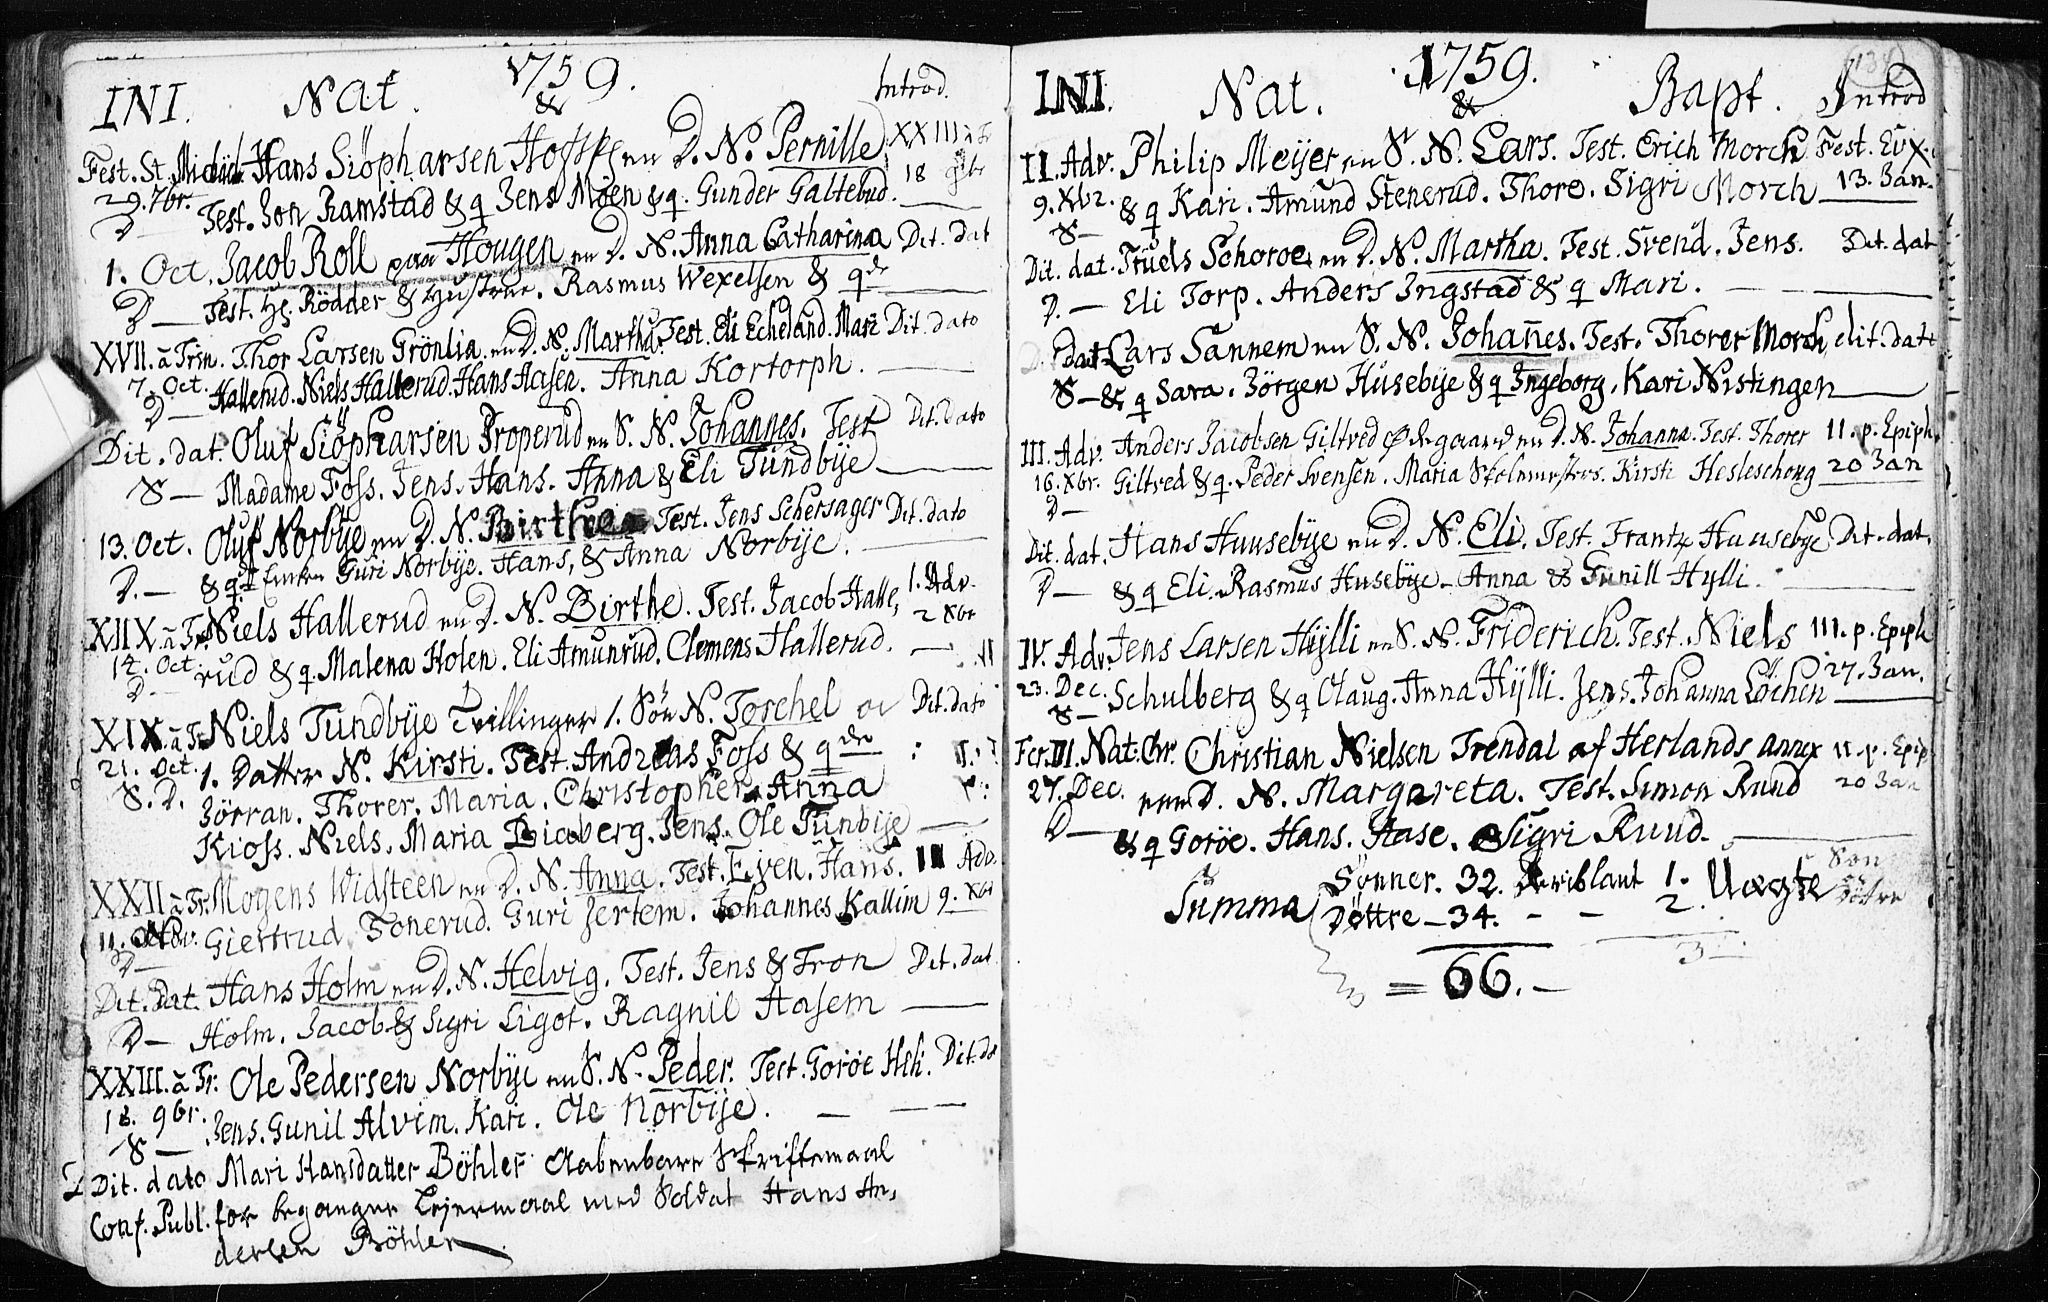 1759.
INI. Nat. & Introd.
Fest. St. Mich. Hans Siöpharsen en D. N. Pernille XXIII à Tr
29. 7br. Test. Jon Ramstad & q Jens Moen & q. Gunder Galtebud. 18 9br
D
1. Oct. Jacob Roll paa Hougen en D. N. Anna Catharina Dit. dat
D — Test. Hr. Rödder & Hustrue. Rasmus Wexelsen & q de
XVII. à Trin. Thor Larsen Grönlia en D. N. Martha. Test. Eli Echeland. Mari Dit. dato
7. Oct. Hallerud. Niels Hallerud. Hans Aasen. Anna Kortorph.
D —
Dit. dat. Oluf Siöpharsen Properud en S. N. Johannes. Test Dit. dato
S — Madame Foss. Jens. Hans. Anna & Eli Tundbÿe
13. Oct. Oluf Norbÿe en D. N. Birthe Test. Jens Schersager Dit. dato
D. — & q. Enken Guri Norbÿe. Hans, & Anna Norbÿe.
XIIX à Tr. Niels Hallerud en D. N. Birthe. Test. Jacob Halle, 1. Adv.
14. Oct. rud & q. Malena Holen. Eli Amunrud. Clemens Hallerud. 2 Xbr
D.
XIX. à Tr. Niels Tundbÿe Tvillinger 1. Sön N. Torchel oc Dit. dato
21. Oct. 1. Datter N. Kirsti. Test. Andreas Foss & q de
S. D. Jörran. Thorer. Maria. Christopher. Anna
Kioss. Niels. Maria Bieberg. Jens. Ole Tunbÿe
XXII à Tr. Mogens Widsteen en D. N. Anna. Test. Even. Hans. II Adv.
11. Nov. Giertrud Fonerud. Guri Jertem. Johannes Kallim 9. Xbr
D —
Dit. Dat. Hans Holm en D. N. Helvig. Test. Jens & Tron Dit. dat.
D — Holm. Jacob & Sigri Ligot. Ragnil Hasem
XXIII. à Tr. Ole Pedersen Norbÿe en S. N. Peder. Test. Goroe Dit. dat
18. 9br. Jens. Gunil Alvim. Kari. Ole Norbÿe.
S —
Dit. dato Mari Hansdatter Böhler Aabenbare Skriftemaal
Conf. Publ. for begangne Lejermaal med Soldat Hans An,
dersen Böhler
1759.
INI. Nat. & Bapt. Introd
II. Adv. Philip Meÿer en S. N. Lars. Test. Erich Morch Fest. Ev X.
9. Xbr. & q Kari. Amund Stenerud. Thore. Sigri Morch 13. Jan.
S —
Dit. dat. Truels Schoroe en D. N. Martha. Test. Svend. Jens. Dit. dat
D. — Eli Torp. Anders Ingstad & q Mari.
D. dat. Lars Sannem en S. N. Johannes. Test. Thorer Morch dit. dat
S — & q Sara. Jörgen Husebÿe & q Ingeborg. Kari Nistingen
III. Adv. Anders Jacobsen Giltved Ødegaard en D. N. Johanna. Test. Thorer 11. p. Epiph.
16. Xbr. Giltved & q. Peder Svensen. Maria Skolemesters. Kirsti Hesleschoug 20 Jan
D —
Dit. dat. Hans Huusebÿe en D. N. Eli. Test. Frantz Huusebÿe Dit. dat.
D — & q Eli. Rasmus Husebÿe. Anna & Gunill Hylli.
IV. Adv. Jens Larsen Hÿlli en S. N. Friderich. Test. Niels III. p. Epiph
23. Dec. Schulberg & q Olaug. Anna Hÿlli. Jens. Johanna Löchen 27. Jan.
S —
Fer. III. Nat. Chr. Christian Nielsen Trendal af Herlands annex 11. p. Epip
27. Dec. en D. N. Margareta. Test. Simon Ruud 20 Jan
D — & q Goroe. Hans. Aase. Sigri Ruud.
Summa Sønner. 32. Deriblant 1. Uægte Søn
Døttre — 34. - - 2. Døtre
3
= 66. —